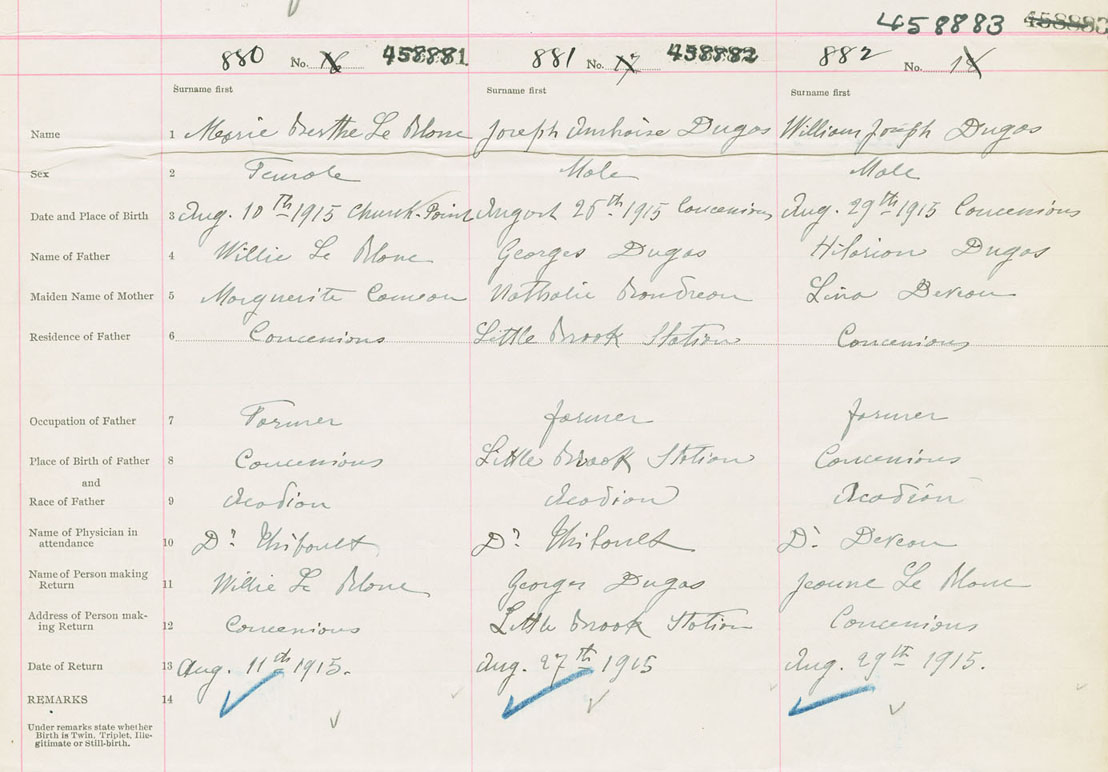 458883 458883
880 No. 16 458881 881 No. 17 458882 882 No. 18
Surname first Surname first Surname first
Name 1 Marie Berthe Le Blanc Joseph Ambroise Dugas William Joseph Dugas
Sex 2 Female Male Male
Date and Place of Birth 3 Aug. 10th 1915 Church-Point August 26th 1915 Concenions Aug. 29th 1915 Concenions
Name of Father 4 Willie Le Blanc Georges Dugas Hilarion Dugas
Maiden Name of Mother 5 Marguerite Comeau Nathalie Boudreau Lina Deveau
Residence of Father 6 Concenions Little Brook Station Concenions
Occupation of Father 7 Farmer farmer farmer
Place of Birth of Father 8 Concenions Little Brook Station Concenions
and
Race of Father 9 Acadian Acadian Acadian
Name of Physician in
attendance 10 Dr Thibault Dr Thibault Dr Deveau
Name of Person making
Return 11 Willie Le Blanc Georges Dugas Jeanne Le Blanc
Address of Person mak-
ing Return 12 Concenions Little Brook Station Concenions
Date of Return 13 Aug. 11th 1915. Aug. 27th 1915 Aug. 29th 1915.
REMARKS 14
Under remarks state whether
Birth is Twin, Triplet, Ille-
gitimate or Still-birth.